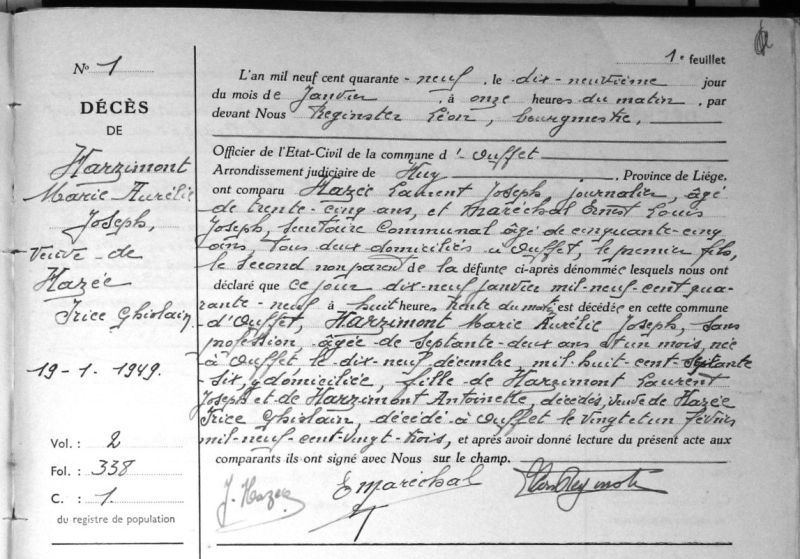 1e feuillet
No 1
DÉCÈS
DE
Harzimont
Marie Aurélie
Joseph,
veuve de
Hazée
Irice Ghislain
19-1. 1949.
Vol. : 2
Fol. : 338
C. : 1
du registre de population
L'an mil neuf cent quarante - neuf , le dix-neuvième jour
du mois de Janvier , à onze heures du matin , par
devant Nous Reginster Léon, bourgmestre,
Officier de l'Etat-Civil de la commune d'Ouffet
Arrondissement judiciaire de Huy , Province de Liége,
ont comparu Hazée Laurent Joseph, journalier, âgé
de trente-cinq ans, et Maréchal Ernest Louis
Joseph, secrétaire Communal âgé de cinquante-cinq
ans tous deux domiciliés à Ouffet, le premier fils,
le second non parent de la défunte ci-après dénommée lesquels nous ont
déclaré que ce jour dix-neuf janvier mil-neuf-cent qua-
rante-neuf à huit heures trente du matin est décédée en cette commune
d'Ouffet, Harzimont Marie Aurélie Joseph, sans
profession, âgée de septante-deux ans et un mois, née
à Ouffet le dix-neuf décembre, mil-huit-cent-septante
-six, y domiciliée, fille de Harzimont Laurent
Joseph et de Harzimont Antoinette, décédés, veuve de Hazée
Irice Ghislain, décédé à Ouffet le vingt et un février
mil-neuf-cent-vingt-trois, et après avoir donné lecture du présent acte aux
comparants ils ont signé avec Nous sur le champ.
J. Hazée E Maréchal